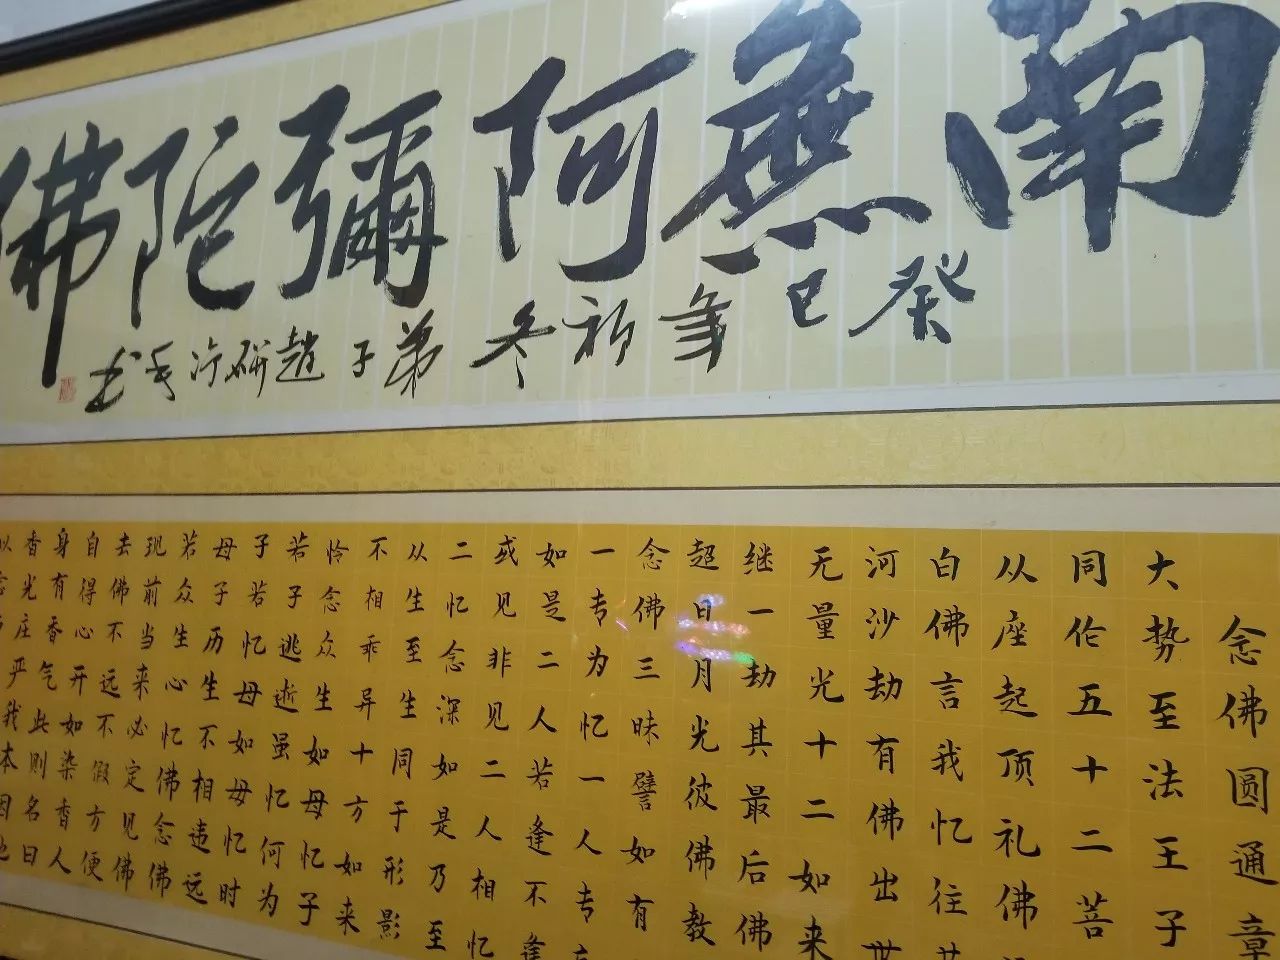 南無阿彌陀佛
癸巳年初冬弟子趙研
念佛圆通章
大势至法王子
同伦五十二菩
从座起顶礼佛
白佛言我忆往
河沙劫有佛出世
无量光十二如来
继一劫其最后佛
超日月光彼佛教
念佛三昧譬如有
一专为忆一人专
如是二人若逢不逢
或见非见二人相忆
二忆念深如是乃至
从生至生同于形影
不相乖异十方如来
怜念众生如母忆子
若子逃逝虽忆何为
子若忆母如母忆时
母子历生不相违远
若众生心忆佛念佛
现前当来必定见佛
去佛不远不假方便
自得心开如染香人
身有香气此则名曰
香光庄严我本因